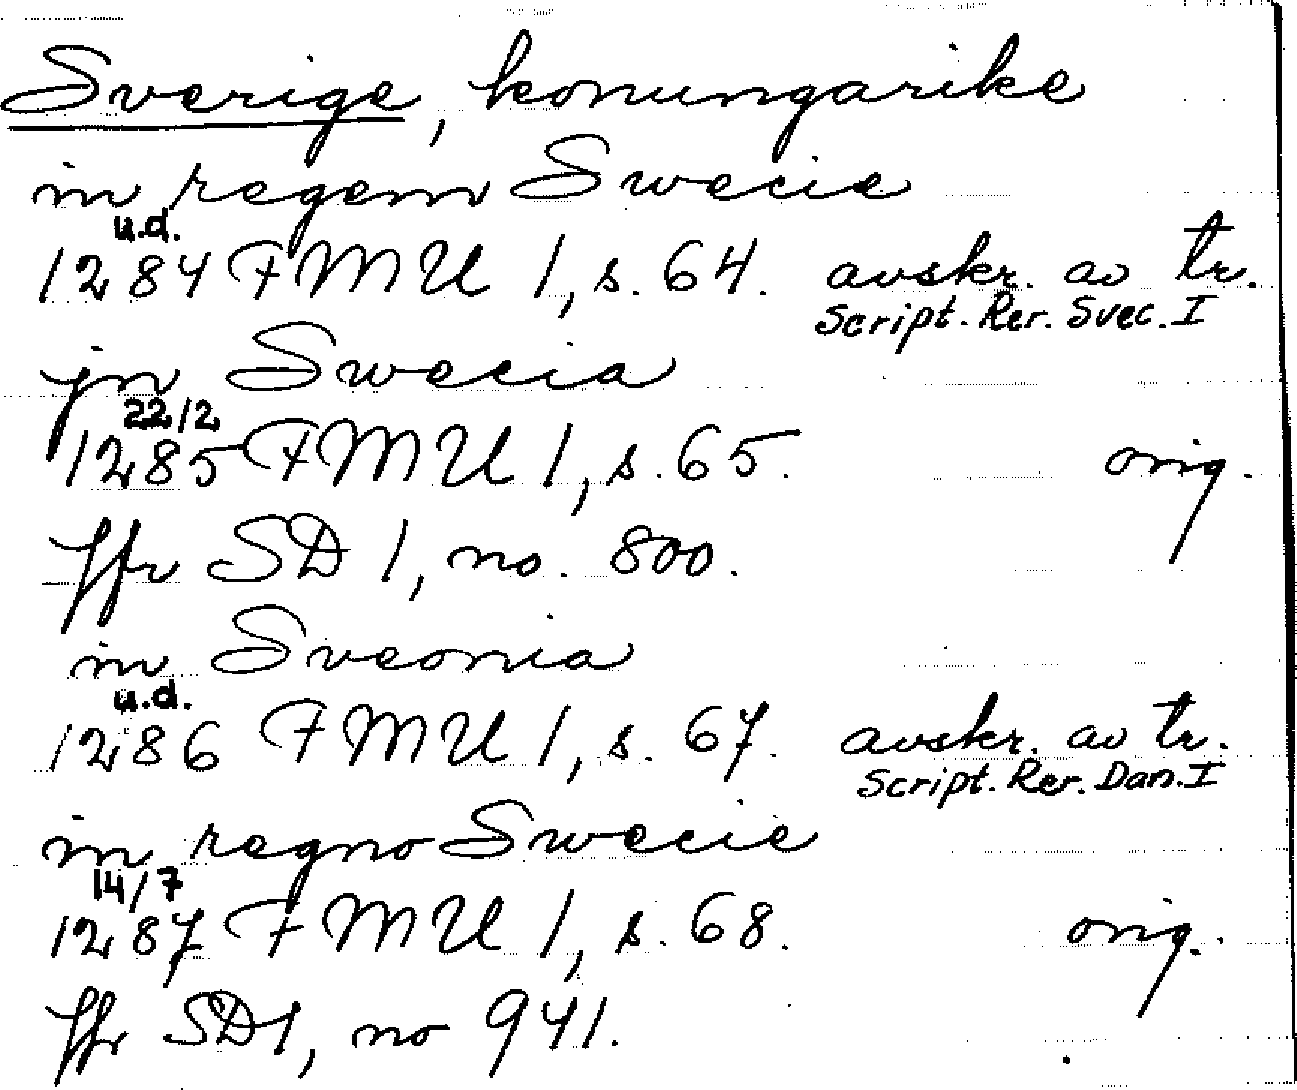 Sverige, konungarike
in regem Swecie
u.d.
1284 FMU 1, s. 64. avskr. av tr.
Script. Rer. Svec. I
jn Swecia
22/2
1285 FMU 1, s. 65. orig.
jfr SD 1, no. 800.
in Sveonia
u.d.
1286 FMU 1, s. 67. avskr. av tr.
Script. Rer. Dan. I
in regno Swecie
14/7
1287 FMU 1, s. 68. orig.
jfr SD 1, no 941.